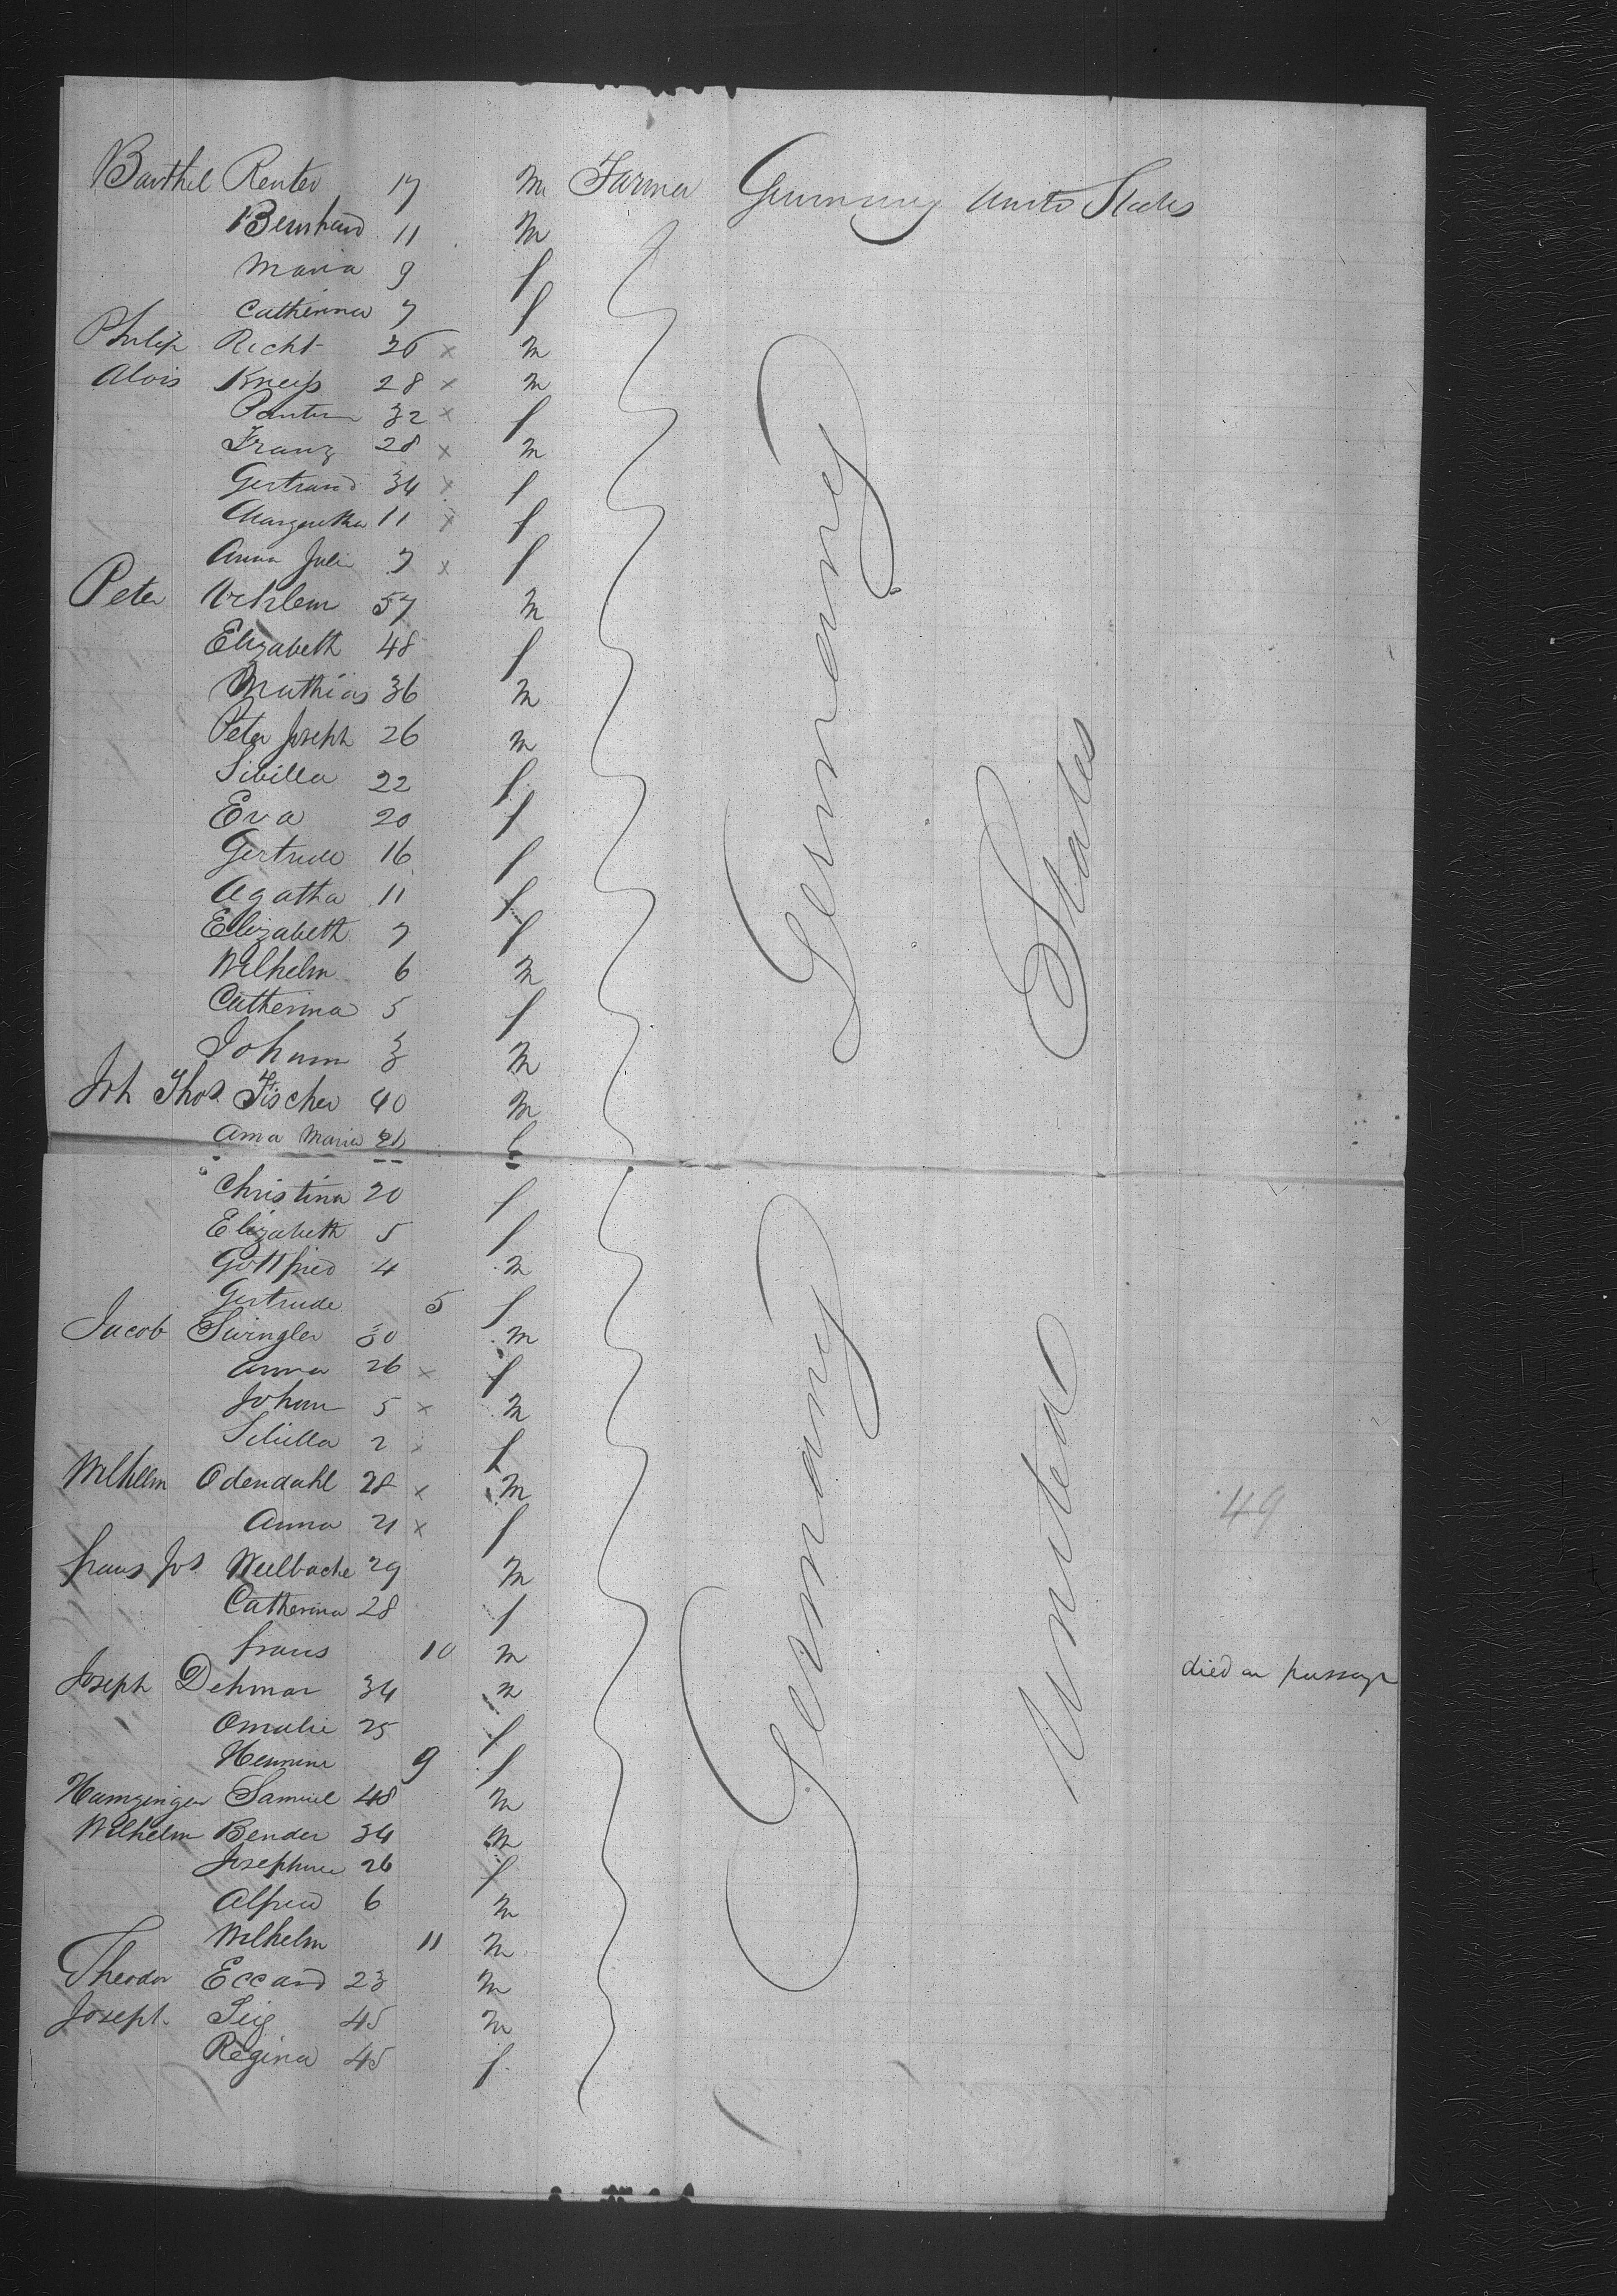 Barthel Renter 17 m Farmer Germany United States
Bernhard 11 m
Maria 9 f
Catherina 7 f
Philip Richt 26 x m
Alois Kneip 28 x m
32 x f
Franz 28 x m
Gertraud 34 x f
Margaretha 11 x f
Anna Julia 7 x f
Peter 57 m
Elizabeth 48 f
Mathias 36 m
Peter Joseph 26 m
Sibilla 22 f
Eva 20 f
Gertrude 16 f
Agatha 11 f
Elizabeth 7 f
Wilhelm 6 m
Catherina 5 f
Johann 3 m
Joh Thos. Fischer 40 m
Anna Maria f
Christina 20 f
Elizabeth 5 f
Gottfried 4 m
Gertrude 5 f
Jacob Swingler 30 m
Anna 26 x f
Johann 5 x m
Sibilla 2 x f
Wilhelm Odendahl 28 x m
Anna 21 x f
frans Jos Weilbache 29 m
Catherina 28 f
frans 10 m died on passage
Joseph Dehmar 34 m
Omalie 25 f
Hermine 9 f
Hamzinger Samuel 48 m
Wilhelm Bender 34 m
Josephine 26 f
Alfred 6 m
Wilhelm 11 m
Theodor Eccard 23 m
Joseph Seig 45 m
Regina 45 f
Germany
Germany
United States
49